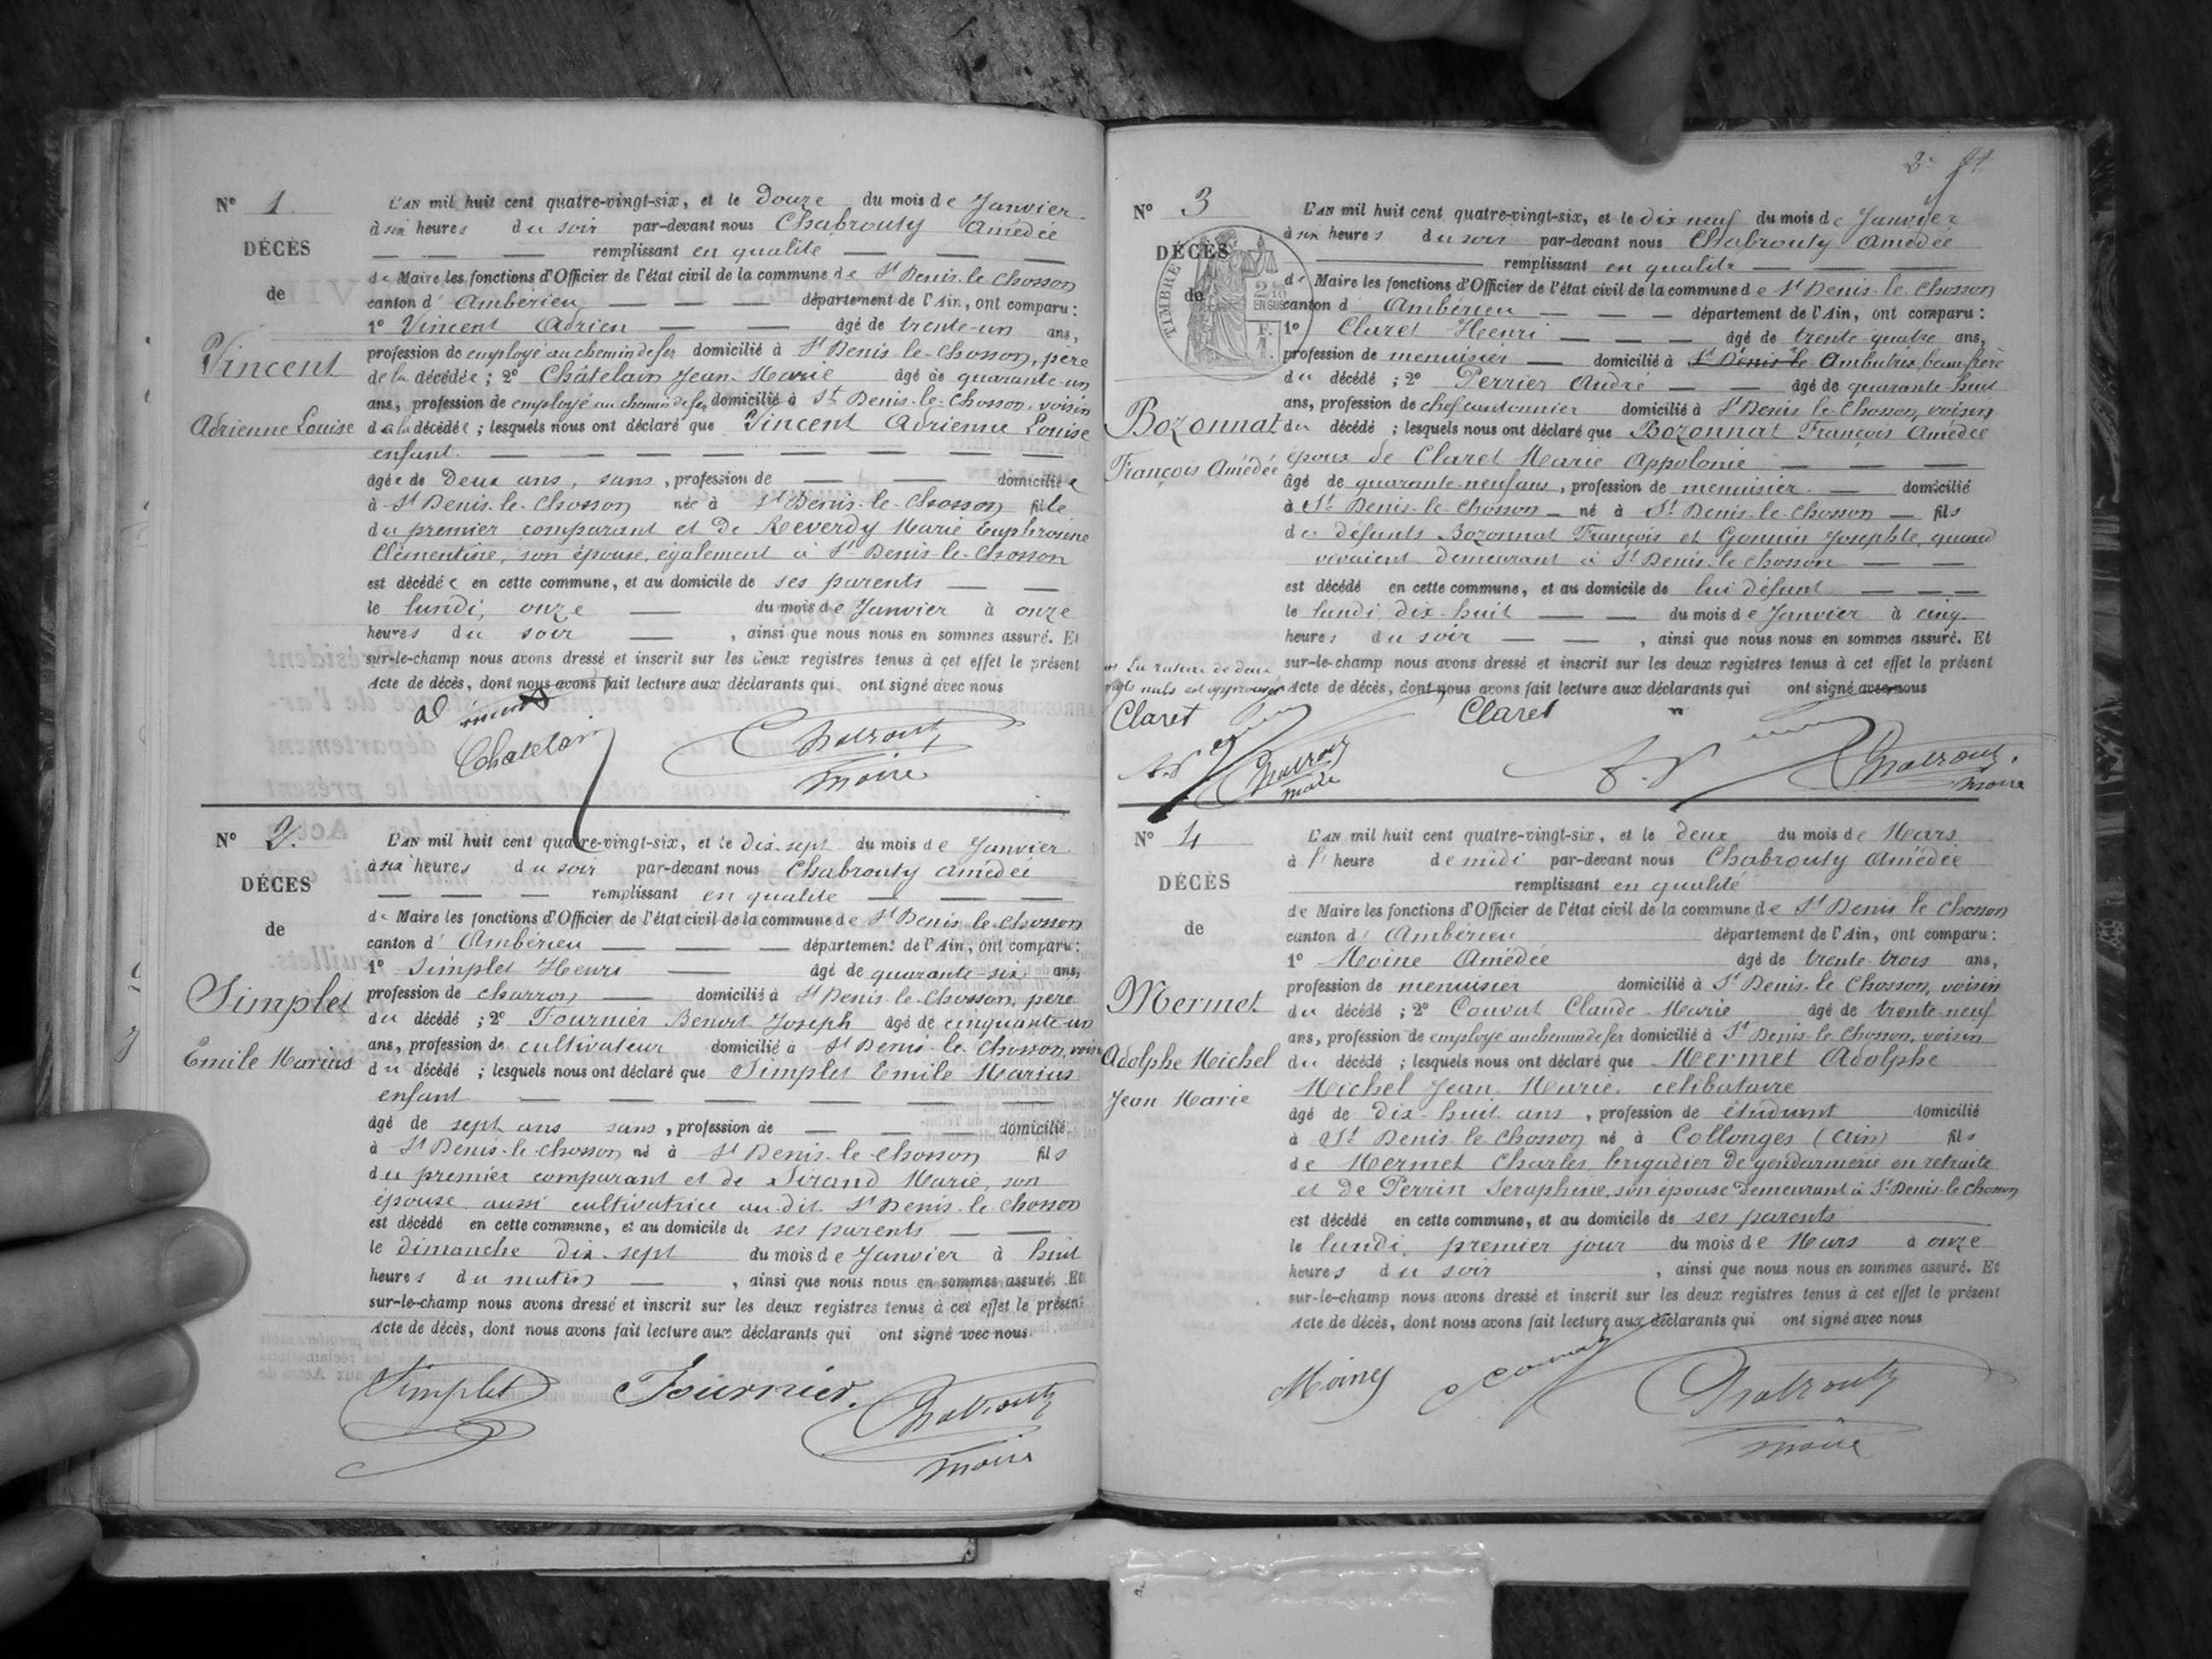 N° 1.
DÉCÈS
de
Vincent
Adrienne Louise
L'AN mil huit cent quatre-vingt-six, et le Douze du mois de Janvier
à six heures du soir par-devant nous Chabrouty Amédée
remplissant en qualité
de Maire les fonctions d'Officier de l'état civil de la commune de St Denis-le-Chosson
canton d' Ambérieu département de l'Ain, ont comparu :
1° Vincent Adrien âgé de trente-un ans,
profession de employé au chemin de fer domicilié à St Denis-le-Chosson, père
de la décédée ; 2° Châtelain Jean-Marie âgé de quarante-un
ans, profession de employé au chemin de fer domicilié à St Denis-le-Chosson, voisin
de la décédée ; lesquels nous ont déclaré que Vincent Adrienne Louise
enfant
âgée de Deux ans, sans, profession de domiciliée
à St Denis-le-Chosson née à St Denis-le-Chosson fille
du premier comparant et de Reverdy Marie Euphrosine
Clémentine, son épouse, également à St Denis-le-Chosson
est décédée en cette commune, et au domicile de ses parents
le lundi, onze du mois de Janvier à onze
heures du soir , ainsi que nous nous en sommes assuré. Et
sur-le-champ nous avons dressé et inscrit sur les deux registres tenus à cet effet le présent
Acte de décès, dont nous avons fait lecture aux déclarants qui ont signé avec nous
Chatelain
Chabrouty
maire
N° 2.
DÉCES
de
Simplet
Emile Marius
L'AN mil huit cent quatre-vingt-six, et le dix-sept du mois de Janvier
à six heures du soir par-devant nous Chabrouty Amédée
remplissant en qualité
de Maire les fonctions d'Officier de l'état civil de la commune de St Denis-le-Chosson
canton d' Ambérieu département de l'Ain, ont comparu :
1° Simplet Henri âgé de quarante-six ans,
profession de charron domicilié à St Denis-le-Chosson, père
du décédé ; 2° Fournier Benoit Joseph âgé de cinquante-un
ans, profession de cultivateur domicilié à St Denis-le-Chosson, voisin
du décédé ; lesquels nous ont déclaré que Simplet Emile Marius
enfant
âgé de sept ans sans , profession de domicilié
à St Denis-le-Chosson né à St Denis-le-Chosson fils
du premier comparant et de Sirand Marie, son
épouse aussi cultivatrice au dit St Denis-le-Chosson
est décédé en cette commune, et au domicile de ses parents
le dimanche dix-sept du mois de Janvier à huit
heures du matin , ainsi que nous nous en sommes assuré. Et
sur-le-champ nous avons dressé et inscrit sur les deux registres tenus à cet effet le présent
Acte de décès, dont nous avons fait lecture aux déclarants qui ont signé avec nous.
Simplet Fournier. Chabrouty
maire
N° 3
DÉCÈS
de
TIMBRE
Bozonnat
François Amédée
L'AN mil huit cent quatre-vingt-six, et le dix neuf du mois de Janvier
à six heures du soir par-devant nous Chabrouty Amédée
remplissant en qualité
de Maire les fonctions d'Officier de l'état civil de la commune de St Denis-le-Chosson
canton d Ambérieu département de l'Ain, ont comparu :
1° Claret Henri âgé de trente quatre ans,
profession de menuisier domicilié à St Denis-le Ambutrix, beau frère
du décédé ; 2° Perrier André âgé de quarante huit
ans, profession de chef cantonnier domicilié à St Denis le Chosson, voisin
du décédé ; lesquels nous ont déclaré que Bozonnat François Amédée
époux de Claret Marie Appolonie
âgé de quarante-neuf ans , profession de menuisier domicilié
à St Denis-le-Chosson né à St Denis-le-Chosson fils
de défunts Bozonnat François et Gonnin Josephte, quand
vivaient demeurant à St Denis-le Chosson
est décédé en cette commune, et au domicile de lui défunt
le lundi, dix-huit du mois de Janvier à cinq
heures du soir , ainsi que nous nous en sommes assuré. Et
sur-le-champ nous avons dressé et inscrit sur les deux registres tenus à cet effet le présent
Acte de décès, dont nous avons fait lecture aux déclarants qui ont signé avec nous
La rature de deux
mots nuls est approuvée
Claret Claret
Chabrouty
maire
Chabrouty.
maire
N° 4
DÉCÈS
de
Mermet
Adolphe Michel
Jean Marie
L'AN mil huit cent quatre-vingt-six, et le deux du mois de Mars
à l' heure de midi par-devant nous Chabrouty Amédée
remplissant en qualité
de Maire les fonctions d'Officier de l'état civil de la commune de St Denis le Chosson
canton d' Ambérieu département de l'Ain, ont comparu :
1° Moine Amédée âgé de trente-trois ans,
profession de menuisier domicilié à St Denis-le Chosson, voisin
du décédé ; 2° Convat Claude-Marie âgé de trente-neuf
ans, profession de employé au chemin de fer domicilié à St Denis-le Chosson, voisin
du décédé ; lesquels nous ont déclaré que Mermet Adolphe
Michel Jean-Marie, célibataire
âgé de dix-huit ans , profession de étudiant domicilié
à St Denis le Chosson né à Collonges (Ain) fils
de Mermet Charles, brigadier de gendarmerie en retraite
et de Perrin Seraphine, son épouse demeurant à St Denis-le-Chosson
est décédé en cette commune, et au domicile de ses parents
le lundi, premier jour du mois de Mars à onze
heures du soir , ainsi que nous nous en sommes assuré. Et
sur-le-champ nous avons dressé et inscrit sur les deux registres tenus à cet effet le présent
Acte de décès, dont nous avons fait lecture aux déclarants qui ont signé avec nous
Moine Chabrouty
maire